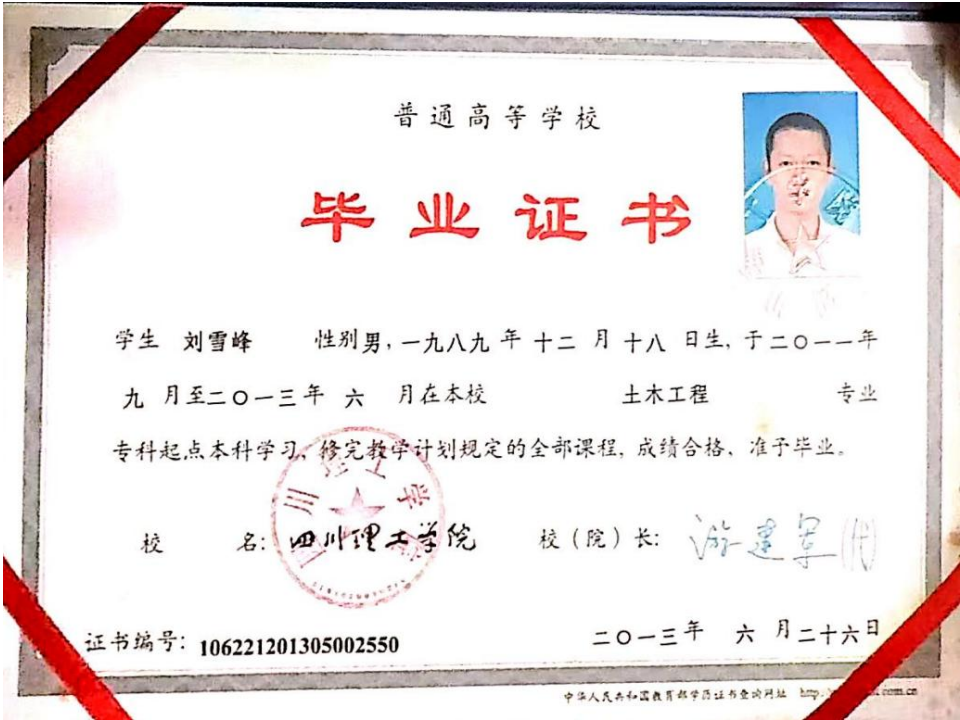 普通高等学校
毕业证书
学生 刘雪峰 性别男,一九八九年十二月十八日生,于二〇一一年
九月至二〇一三年六月在本校 土木工程 专业
专科起点本科学习,修完教学计划规定的全部课程,成绩合格,准予毕业。
校 名: 四川理工学院 校(院)长: 游建军(代)
证书编号: 106221201305002550 二〇一三年六月二十六日
中华人民共和国教育部学历证书查询网址 http: